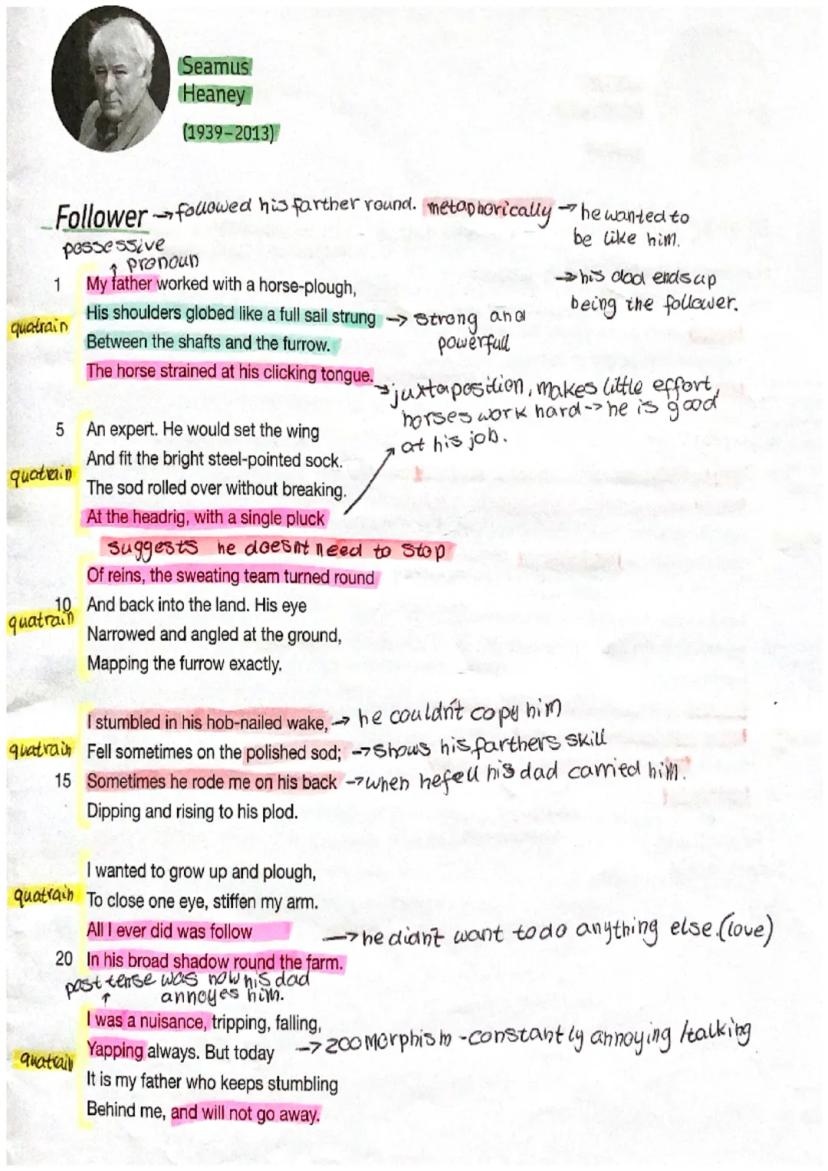 Seamus
Heaney
(1939–2013)
Follower → followed his farther round. metaphorically → he wanted to
be like him.
→ his dad ends up
being the follower.
possessive
pronoun
1 My father worked with a horse-plough,
His shoulders globed like a full sail strung → strong and
powerfull
quatrain
Between the shafts and the furrow.
The horse strained at his clicking tongue.
→ juxtaposition, makes little effort,
horses work hard → he is good
at his job.
5 An expert. He would set the wing
And fit the bright steel-pointed sock.
quatrain
The sod rolled over without breaking.
At the headrig, with a single pluck
suggests he doesnt need to stop
Of reins, the sweating team turned round
10 And back into the land. His eye
quatrain
Narrowed and angled at the ground,
Mapping the furrow exactly.
I stumbled in his hob-nailed wake, → he couldn't copy him
quatrain
Fell sometimes on the polished sod; → shows his farthers skill
15 Sometimes he rode me on his back → when he fell his dad carried him.
Dipping and rising to his plod.
I wanted to grow up and plough,
quatrain
To close one eye, stiffen my arm.
All I ever did was follow → he didn't want to do anything else. (love)
20 In his broad shadow round the farm.
past tense was now his dad
annoyes him.
I was a nuisance, tripping, falling,
Yapping always. But today → zoomorphism - constantly annoying / talking
quatrain
It is my father who keeps stumbling
Behind me, and will not go away.